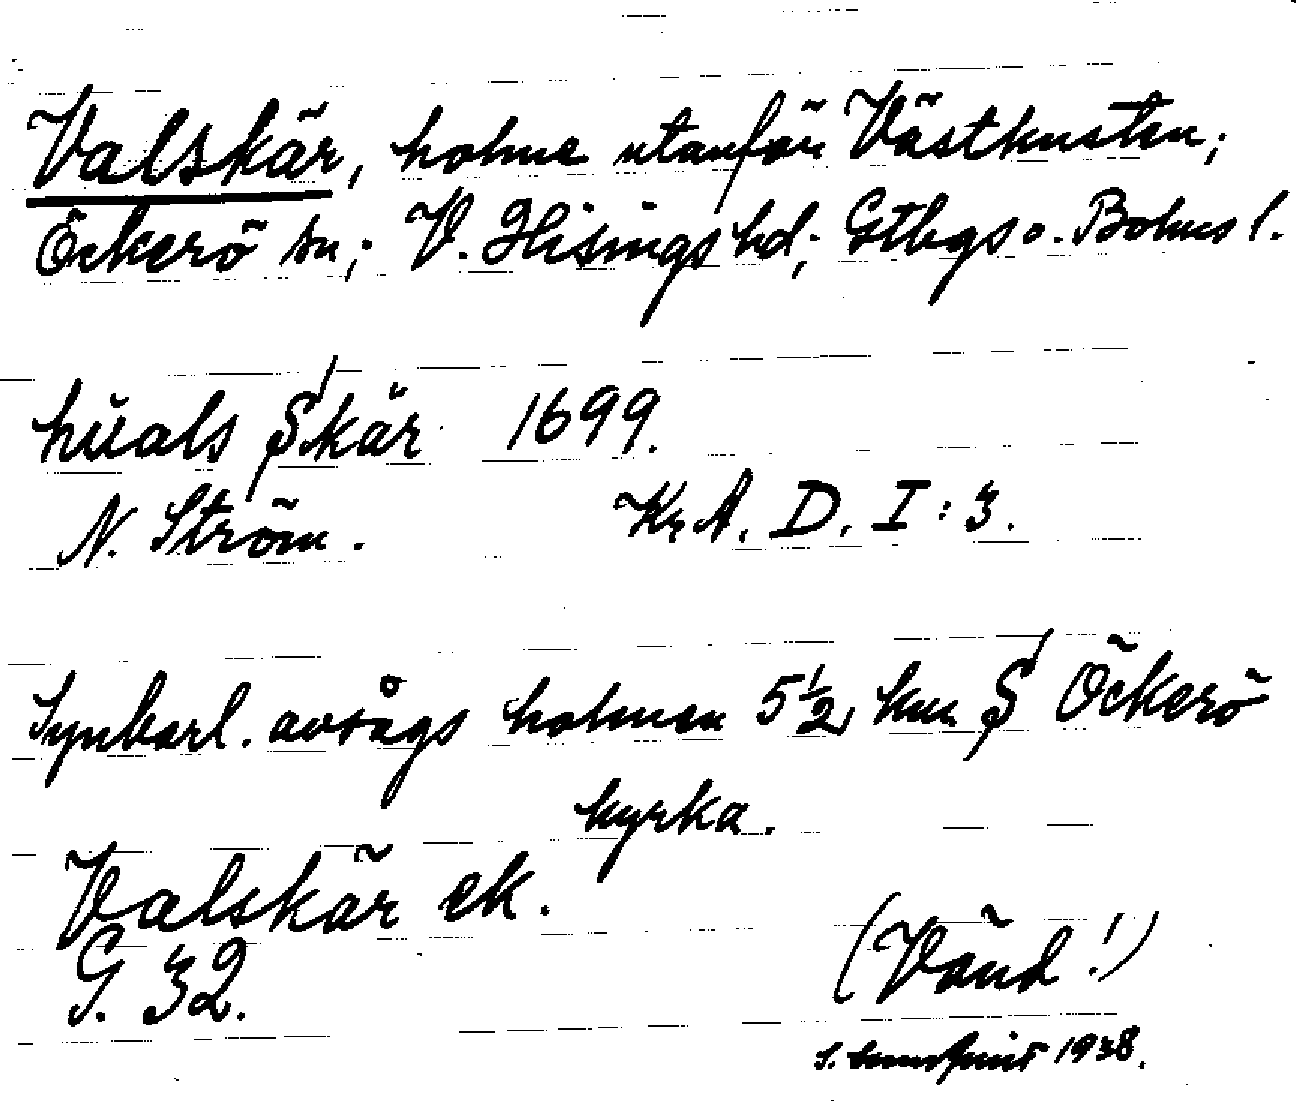 Valskär, holme utanför Västkusten;
Öckerö sn; V. Hisings hd; Gtbgs o. Bohus l.
hüals Skär 1699.
N. Ström. KrA. D. I:3.
Synbarl. avsågs holmen 5½ km S Öckerö
kyrka.
Valskär ek.
G. 32.
(Vänd!)
1938.